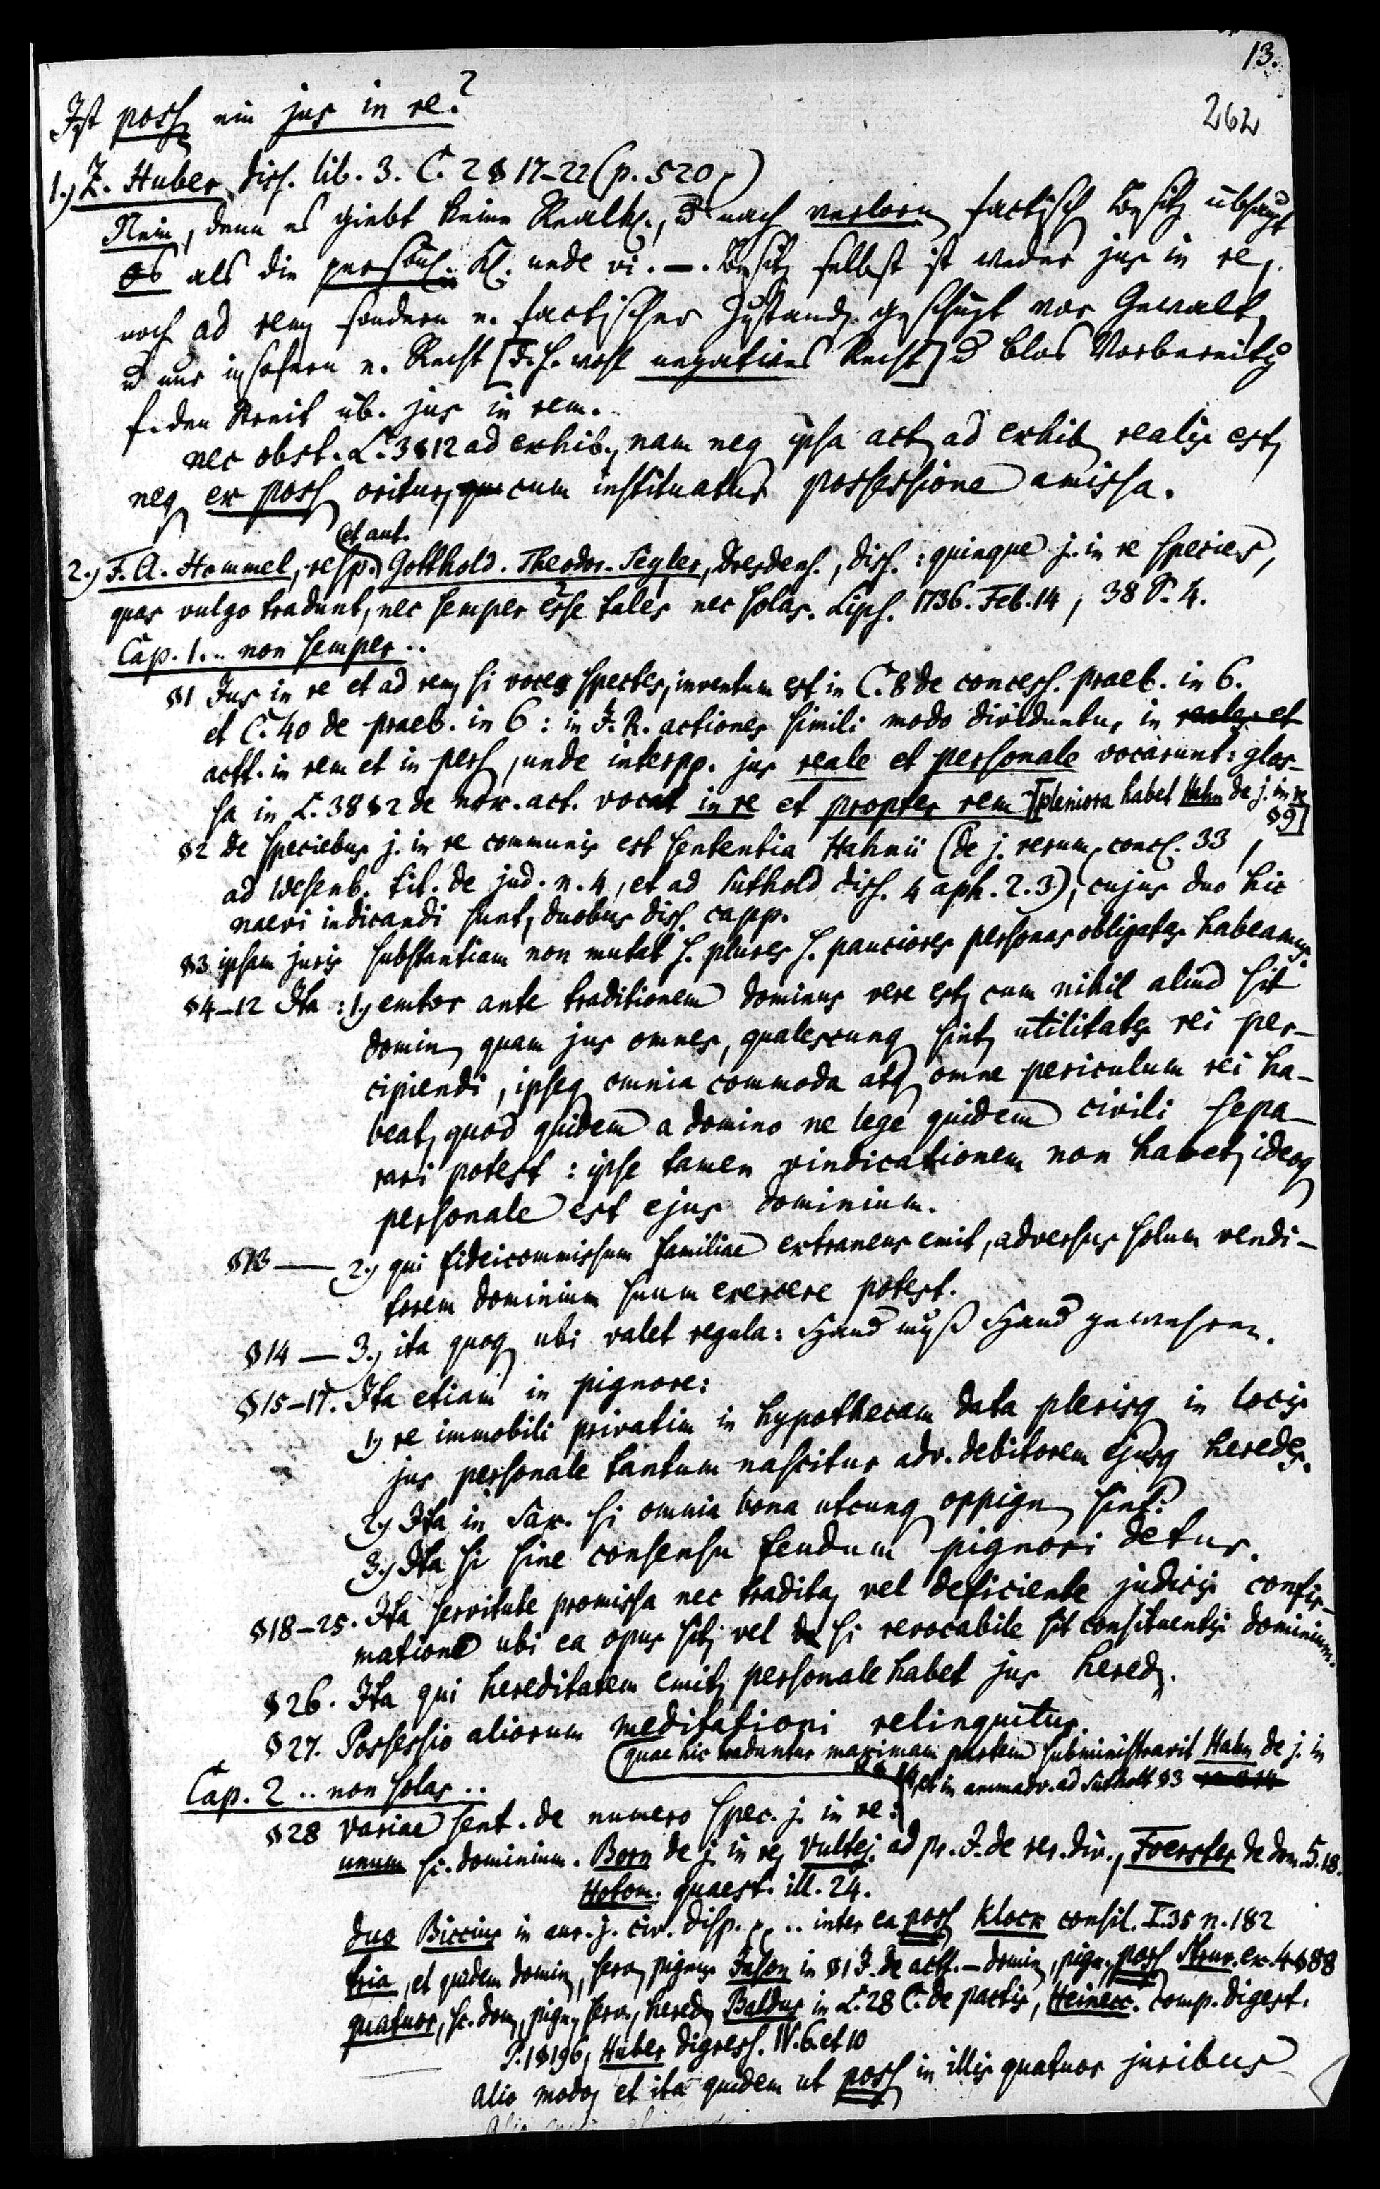 13.
262
Ist poss. ein jus in re?
1.) Z. Huber, diss. lib. 3. C. 2 § 17–22 (p. 520,)
Nein, denn es giebt keine Realkl., u nach verlorn factisch Besitz übhaupt
als die persönl. Kl. unde vi. —. Besitz selbst ist weder jus in re,
noch ad rem, sondern e. factischer Zustand, geschützt vor Gewalt,
u nur insofern e. Recht [d. h. wohl negatives Recht] u blos Vorbereitg
f. den Streit üb. jus in rem.
nec obst. L. 3 § 12 ad exhib., nam neq ipsa act. ad exhib. realis est,
neq ex poss. oritur, cum instituatur possessione amissa.
2.) F. A. Hommel, resp. (et aut.) Gotthold. Theodor. Segler, Dresdens., diss.: quinque j. in re species,
quas vulgo tradunt, nec semper esse tales, nec solas. Lips. 1736. Feb. 14, 38 S. 4.
Cap. 1... non semper..
§1 Jus in re et ad rem, si voces spectes, inventum est in C. 8 de concess. praeb. in 6.
et C. 40 de praeb. in 6: in J. R. actiones simili modo dividuntur in reales et
actt. in rem et in pers., unde interpp. jus reale et personale vocarunt: glos-
sa in L. 38 § 2 de nox. act. vocat in re et propter rem [pleniora habet Hahn de j. in re
§9]
§2 de speciebus j. in re communis est sententia Hahnii (de j. rerum, concl. 33,
ad Wesenb. tit. de jud. n. 4, et ad Suthold diss. 4 aph. 2. 3), cujus duo hic
naevi indicandi sunt, duobus diss. capp.
§3 ipsam juris substantiam non mutat s. plures s. pauciores personas obligatas habeamus.
§4–12 Ita: 1.) emtor ante traditionem dominus vere est, cum nihil aliud sit
domin. quam jus omnes, qualescunq sint, utilitates rei per-
cipiendi, ipseq omnia commoda atq omne periculum rei ha-
beat, quod quidem a domino ne lege quidem civili sepa-
rari potest: ipse tamen vindicationem non habet, ideoq
personale est ejus dominium.
§13 — 2.) qui fideicommissum familiae extraneus emit, adversus solum vendi-
torem dominium suum exercere potest.
§14 — 3.) ita quoq ubi valet regula: Hand muß Hand gewahren.
§15–17. Ita etiam in pignore:
1.) re immobili privatim in hypothecam data plerisq in locis
jus personale tantum nascitur adv. debitorem ejusq heredes.
2.) Ita in Sax. si omnia bona utcunq oppign. sint.
3.) Ita si sine consensu feudum pignori detur.
§18–25. Ita servitute promissa nec tradita, vel deficiente judicis confir-
matione ubi ea opus sit, vel si revocabile sit constituentis dominium.
§26. Ita qui hereditatem emit, personale habet jus hered.
§27. Possessio aliorum meditationi relinquitur.
(quae hic traduntur maximam partem subministravit Hahn de j. in
re et in animadv. ad Suthold §3
Cap. 2 .. non solas..
§28 variae sent. de numero spec. j. in re:
unum sc. dominium. Born de j. in re, Vultej. ad pr. J. de rer. div., Foerster de dom. 5. 18.
Hotom. quaest. ill. 24.
duo Biccius in aur. j. civ. disp. .. inter ea poss. Klock consil. I. 35 n. 182
tria, et quidem domin., serv., pignus Jason in §1 J. de actt. — domin., pign., poss. Struv. ex. 4 § 88
quatuor, sc. dom., pign., serv., hered. Baldus in L. 28 C. de pactis, Heinecc. comp. digest.
P. 1 § 196, Huber digress. IV. 6. et 10
Alio modo, et ita quidem ut poss. in illis quatuor juribus